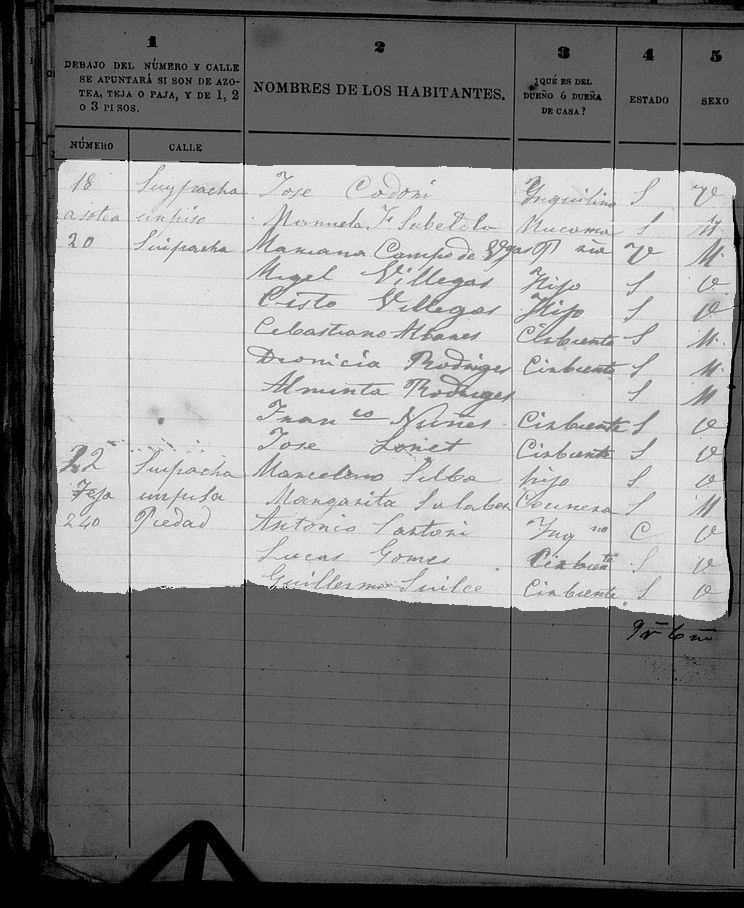 1 2 3 4 5
DEBAJO DEL NÚMERO Y CALLE SE APUNTARÁ SI SON DE AZOTEA, TEJA O PAJA, Y DE 1, 2 O 3 PISOS.
NOMBRES DE LOS HABITANTES.
¿QUÉ ES DEL DUEÑO Ó DUEÑA DE CASA?
ESTADO
SEXO
NÚMERO CALLE
18 Suypacha Jose Codoni Ynquilino S V
asotea un piso Manuela F Mucama S M
20 Suipacha Mariana Campo de V M
Migel Villegas Hijo S V
Cisto Villegas Hijo S V
Cebastiano Albanes Cirbiente S M
Dionicia Rodriges Cirbiente S M
Alminta Rodriges S M
Fran co Nuñes Cirbiente S V
Jose Cirbiente S V
22 Suipacha Marcelino Silba hijo S V
Teja Margarita S M
240 Piedad Antonio Santoni Ynq no C V
Lucas Gomes Cirbiente S V
Guillermo Cirbiente S V
9 v 6 m